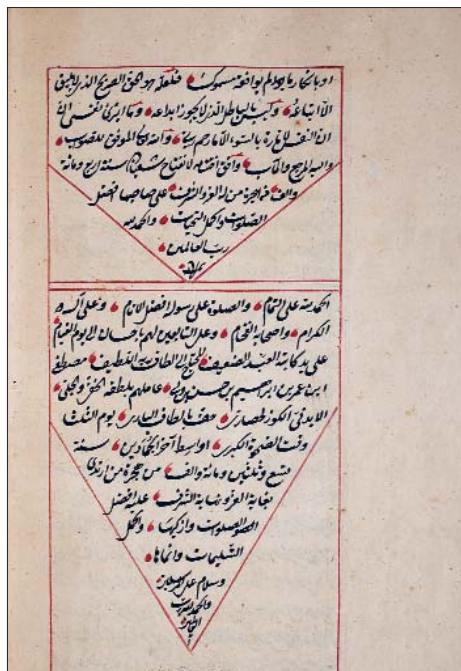 او بانكار ما يوالم يوافقه مسوكت فلعله هو الحق الصريح الذى لا ينبغى
الا اتباعه وليس بالباطل الذى لا يجوز ابداعه وما ابرئ نفسى ان
ان النفس لامارة بالسوء الا ما رحم ربى والله الموفق للصواب
واليه المرجع والمآب وافق اختتام لافتتاح شعبان سنة اربع ومائة
والف من هجرة من له العز والشرف على صاحبها افضل
الصلوات واكمل التحيات والحمد لله
رب العالمين
الحمد لله على التمام والصلوة على رسوله افضل الانام وعلى آله
الكرام واصحابه الفخام وعلى التابعين لهم باحسان الى يوم القيام
على يد كاتبه العبد الضعيف المحتاج الى الطاف ربه اللطيف مصطفى
ابن عمر بن ابراهيم بن حسن عاملهم بلطفه الخفى والجلى
يوم الثلث
وقت الضحوة الكبرى اواسط آخر الجمادين سنة
تسع وثلثين ومائة والف من هجرة من ارتدى
بغاية العز ونهاية الشرف عليه افضل
الصلوات وازكيها واكمل
التسليمات وانماها
وسلام على المرسلين
والحمد لله رب
العالمين